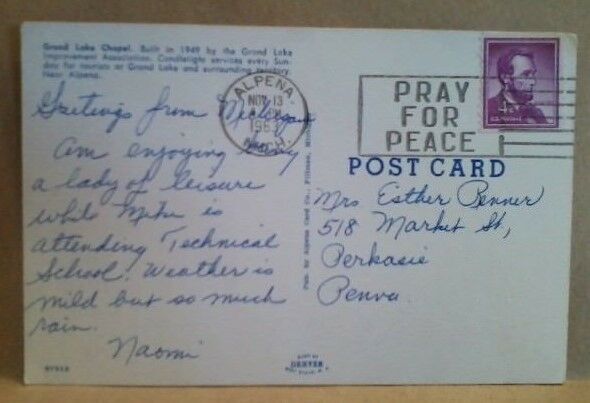 Grand Lake Chapel. Built in 1949 by the Grand Lake
Improvement Association. Candlelight services every Sun-
day for tourists at Grand Lake and surrounding territory.
Near Alpena.
Greetings from Michigan
Am enjoying being
a lady of leisure
while Mike is
attending Technical
School. Weather is
mild but so much
rain.
Naomi
87513
ALPENA
NOV 13
1963
MICH.
PRAY
FOR
PEACE
4¢
POST CARD
Mrs Esther Penner
518 Market St,
Perkasie
Penna.
Pub. by Alpena Card Co.,
MADE BY
DEXTER
WEST NYACK, N. Y.